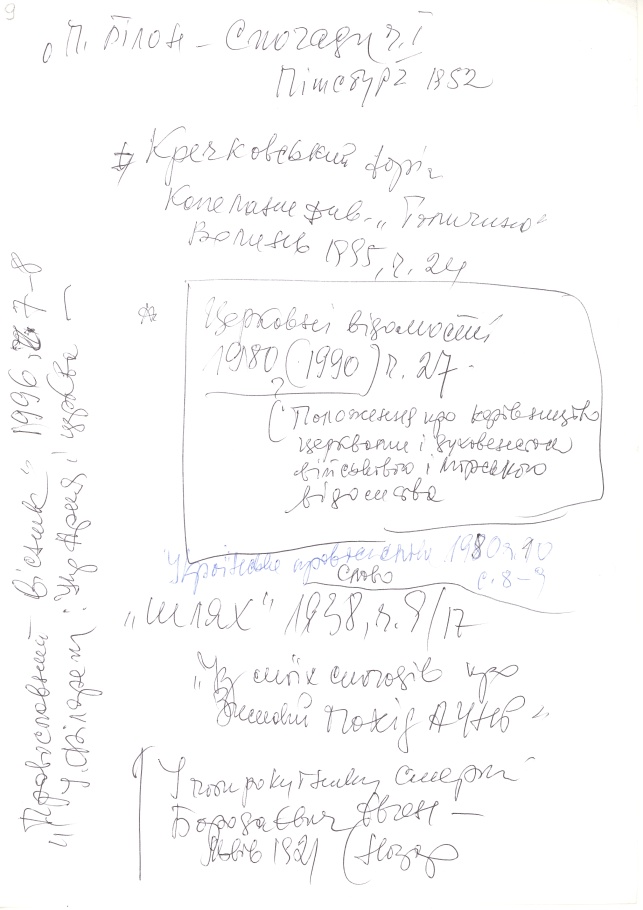 9
П. Білон – Спогади ч. I
Пітсбург 1952
Кречковський
Капелани див. „Галичина"
Волинь 1995, ч. 24
Церковні відомості
1980 (1990) ч. 27.
?
(Положення про керівництво
церквами і духовенством
військового і морського
відомства
Українське православне 1980 ч. 10
слово с. 8–9
„Шлях" 1938, ч. 9/17
„Із моїх спогадів про
Зимовий похід АУНР"
У смерті
Бородаєвич Євген –
Львів 1921 (Назар
„Православний Вісник" 1996, 7–8
Філарет: Україна і церква –